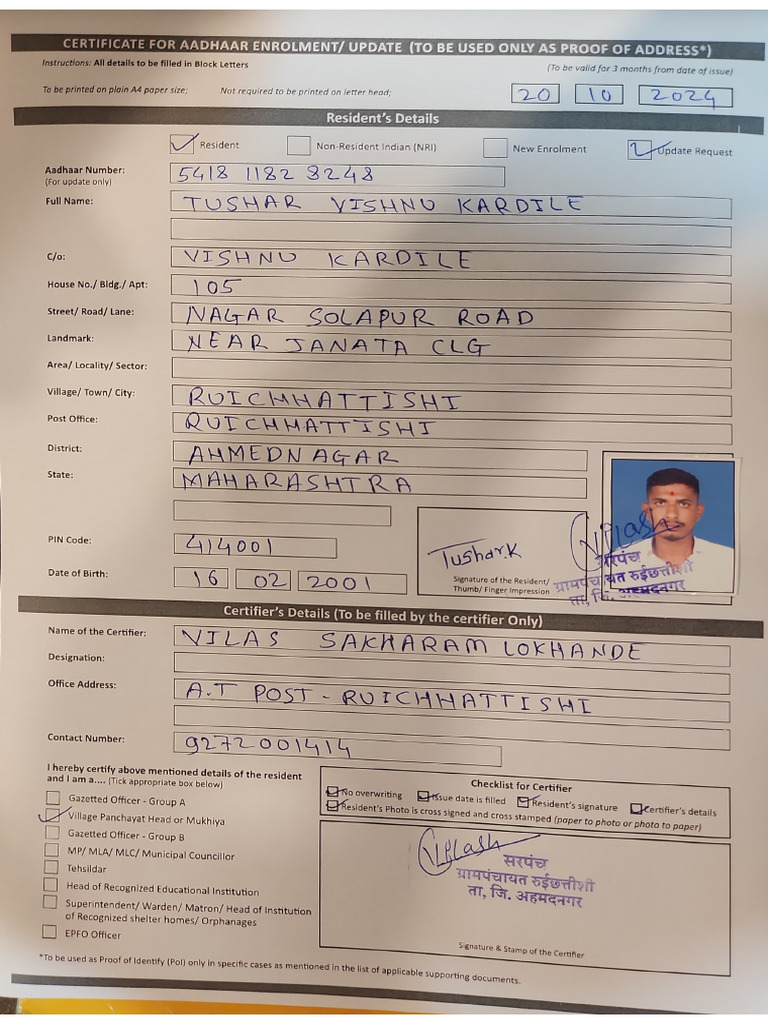 CERTIFICATE FOR AADHAAR ENROLMENT/ UPDATE (TO BE USED ONLY AS PROOF OF ADDRESS*)
Instructions: All details to be filled in Block Letters
(To be valid for 3 months from date of issue)
To be printed on plain A4 paper size; Not required to be printed on letter head;
20 10 2024
Resident's Details
Resident Non-Resident Indian (NRI) New Enrolment Update Request
Aadhaar Number: 5418 1182 8248
(For update only)
Full Name: TUSHAR VISHNU KARDILE
C/o: VISHNU KARDILE
House No./ Bldg./ Apt: 105
Street/ Road/ Lane: NAGAR SOLAPUR ROAD
Landmark: NEAR JANATA CLG
Area/ Locality/ Sector:
Village/ Town/ City: RUICHHATTISHI
Post Office: RUICHHATTISHI
District: AHMEDNAGAR
State: MAHARASHTRA
PIN Code: 414001
Date of Birth: 16 02 2001
Tushar.K
Signature of the Resident/
Thumb/ Finger Impression
सरपंच
ग्रामपंचायत रुईछत्तीशी
ता, जि. अहमदनगर
Certifier's Details (To be filled by the certifier Only)
Name of the Certifier: VILAS SAKHARAM LOKHANDE
Designation:
Office Address: A.T POST - RUICHHATTISHI
Contact Number: 9272001414
I hereby certify above mentioned details of the resident
and I am a.... (Tick appropriate box below)
Gazetted Officer - Group A
Village Panchayat Head or Mukhiya
Gazetted Officer - Group B
MP/ MLA/ MLC/ Municipal Councillor
Tehsildar
Head of Recognized Educational Institution
Superintendent/ Warden/ Matron/ Head of Institution
of Recognized shelter homes/ Orphanages
EPFO Officer
Checklist for Certifier
No overwriting Issue date is filled Resident's signature Certifier's details
Resident's Photo is cross signed and cross stamped (paper to photo or photo to paper)
सरपंच
ग्रामपंचायत रुईछत्तीशी
ता, जि. अहमदनगर
Signature & Stamp of the Certifier
*To be used as Proof of Identify (PoI) only in specific cases as mentioned in the list of applicable supporting documents.